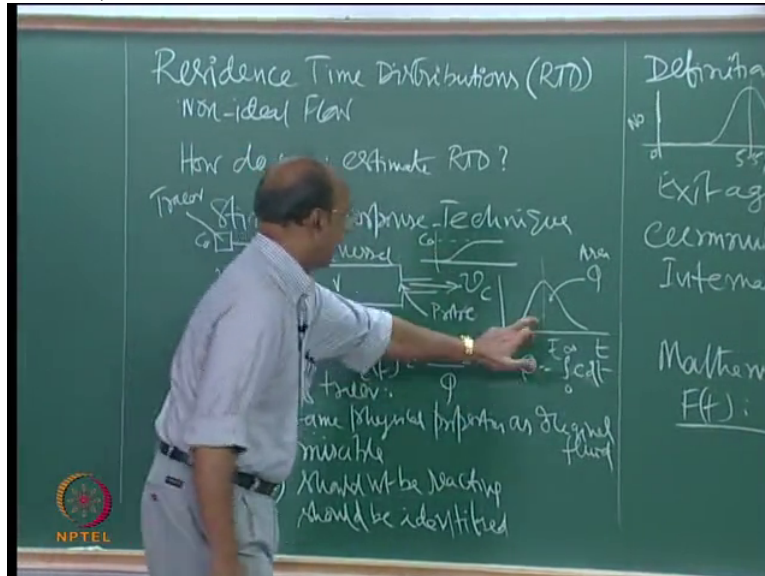 Residence Time Distributions (RTD)
Non-ideal Flow
How do estimate RTD?
Tracer
Response-Technique
C₀
C₀
V
v
Probe
C
Area
q
t̄
t
∫₀^∞ C dt
q
same physical properties as original fluid
miscible
) should not be reactive
should be identified
Definition
No
0
Exit ag
Interna
Mathem
F(t) :
NPTEL